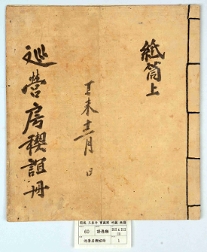 紙筒上
丁未十二月 日
廵營房稧誼冊